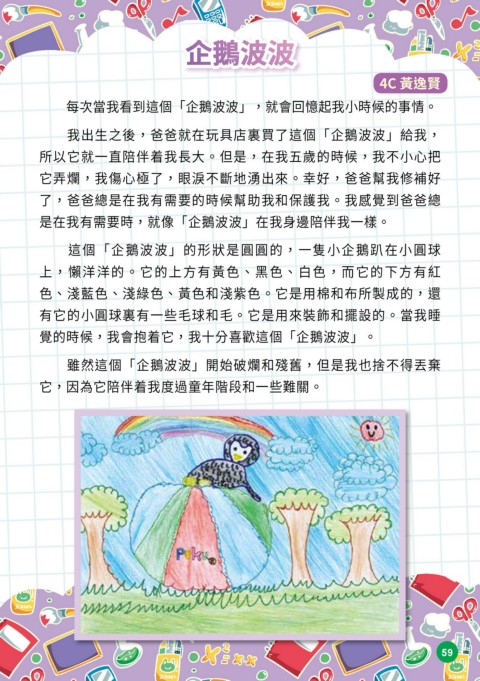 企鵝波波
4C 黃逸賢
每次當我看到這個「企鵝波波」，就會回憶起我小時候的事情。
我出生之後，爸爸就在玩具店裏買了這個「企鵝波波」給我，
所以它就一直陪伴着我長大。但是，在我五歲的時候，我不小心把
它弄爛，我傷心極了，眼淚不斷地湧出來。幸好，爸爸幫我修補好
了，爸爸總是在我有需要的時候幫助我和保護我。我感覺到爸爸總
是在我有需要時，就像「企鵝波波」在我身邊陪伴我一樣。
這個「企鵝波波」的形狀是圓圓的，一隻小企鵝趴在小圓球
上，懶洋洋的。它的上方有黃色、黑色、白色，而它的下方有紅
色、淺藍色、淺綠色、黃色和淺紫色。它是用棉和布所製成的，還
有它的小圓球裏有一些毛球和毛。它是用來裝飾和擺設的。當我睡
覺的時候，我會抱着它，我十分喜歡這個「企鵝波波」。
雖然這個「企鵝波波」開始破爛和殘舊，但是我也捨不得丟棄
它，因為它陪伴着我度過童年階段和一些難關。
59